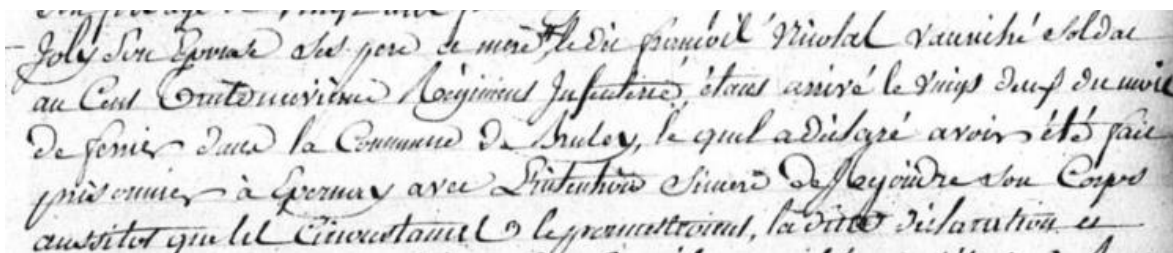 Joly son Epouse ses pere et mere, ledit françois Nicolas Vauriché soldat
au Cent trenteneuvieme Régiment Infenterié, étant arrivé le vingt deux du mois
de fevrier dans la Commune de Bruley, le quel a déclaré avoir été fait
prisonnier à Epernay avec L'intention sincere de Rejoindre son Corps
aussitot que les Circonstances le permettroient, la dite déclaration et